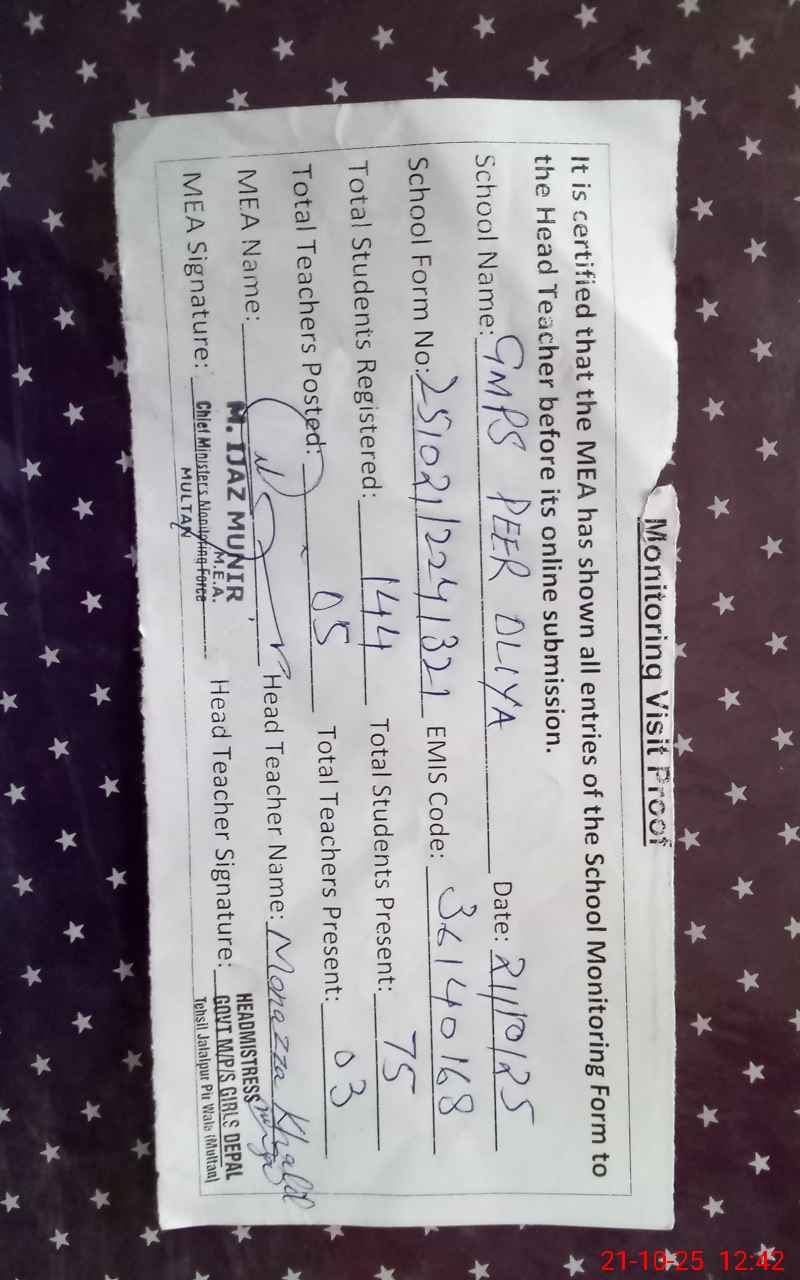 Monitoring Visit Proof
It is certified that the MEA has shown all entries of the School Monitoring Form to
the Head Teacher before its online submission.
School Name: GMPS PEER OLIYA Date: 21/10/25
School Form No: 251021/2241321 EMIS Code: 36140168
Total Students Registered: 144 Total Students Present: 75
Total Teachers Posted: 05 Total Teachers Present: 03
MEA Name: M. IJAZ MUNIR Head Teacher Name: Monazza Khalid
M.E.A.
MEA Signature: Chief Minister's Monitoring Force Head Teacher Signature:
MULTAN
HEADMISTRESS
GOVT M/P/S GIRLS DEPAL
Tehsil Jalalpur Pir Wala (Multan)
21-10-25 12:42